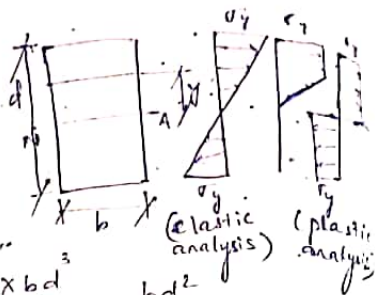 σy σy σy
d
y
A
b
σy
σy
(elastic
analysis)
(plastic
analysis)
x bd³
bd²